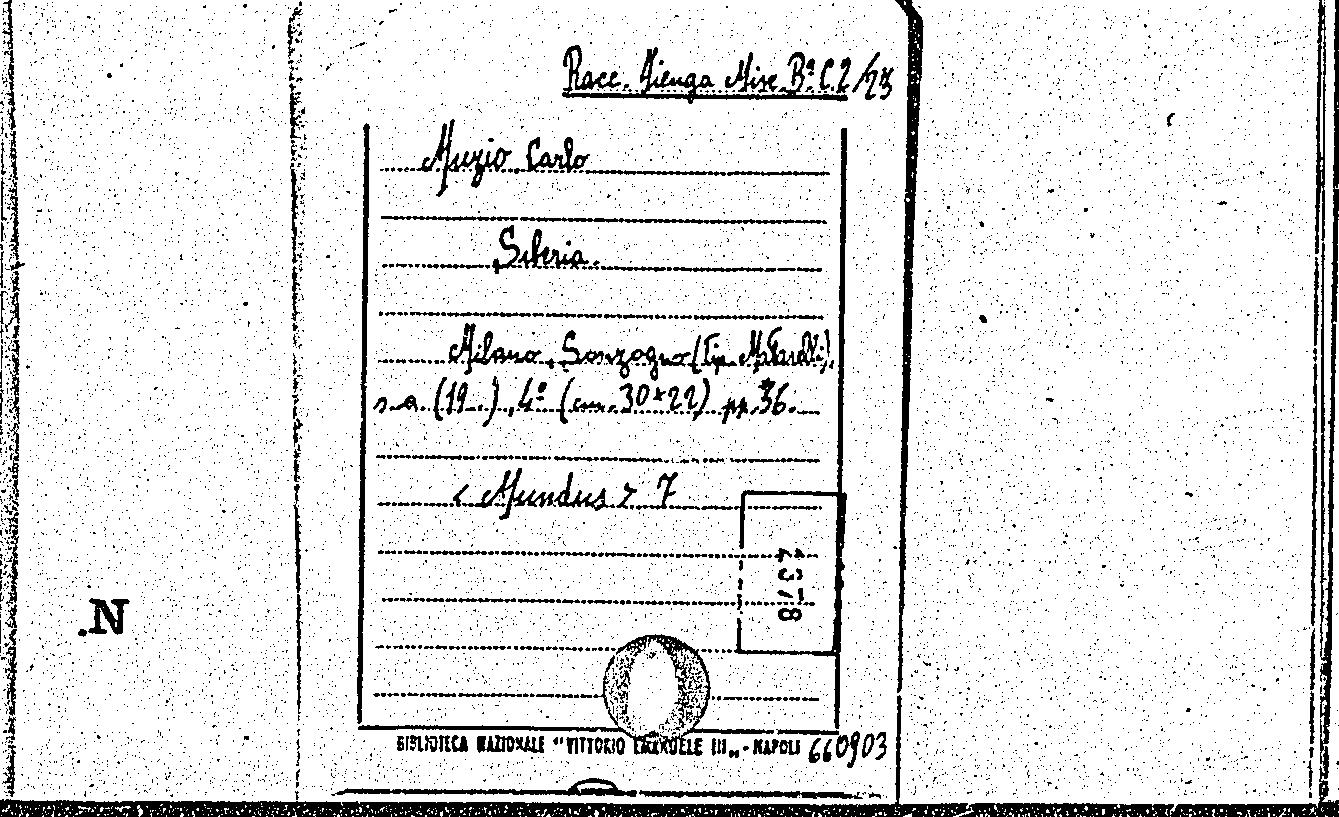 Racc. Mienga Misc. Bª. C. 2/23
Muzio Carlo
Siberia.
Milano, Sonzogno (Tip. Matarelli),
s.a. (19..), 4º (cm. 30x22) pp. 36.
< Mundus > 7
BIBLIOTECA NAZIONALE "VITTORIO EMANUELE III„ - NAPOLI 660903
.N